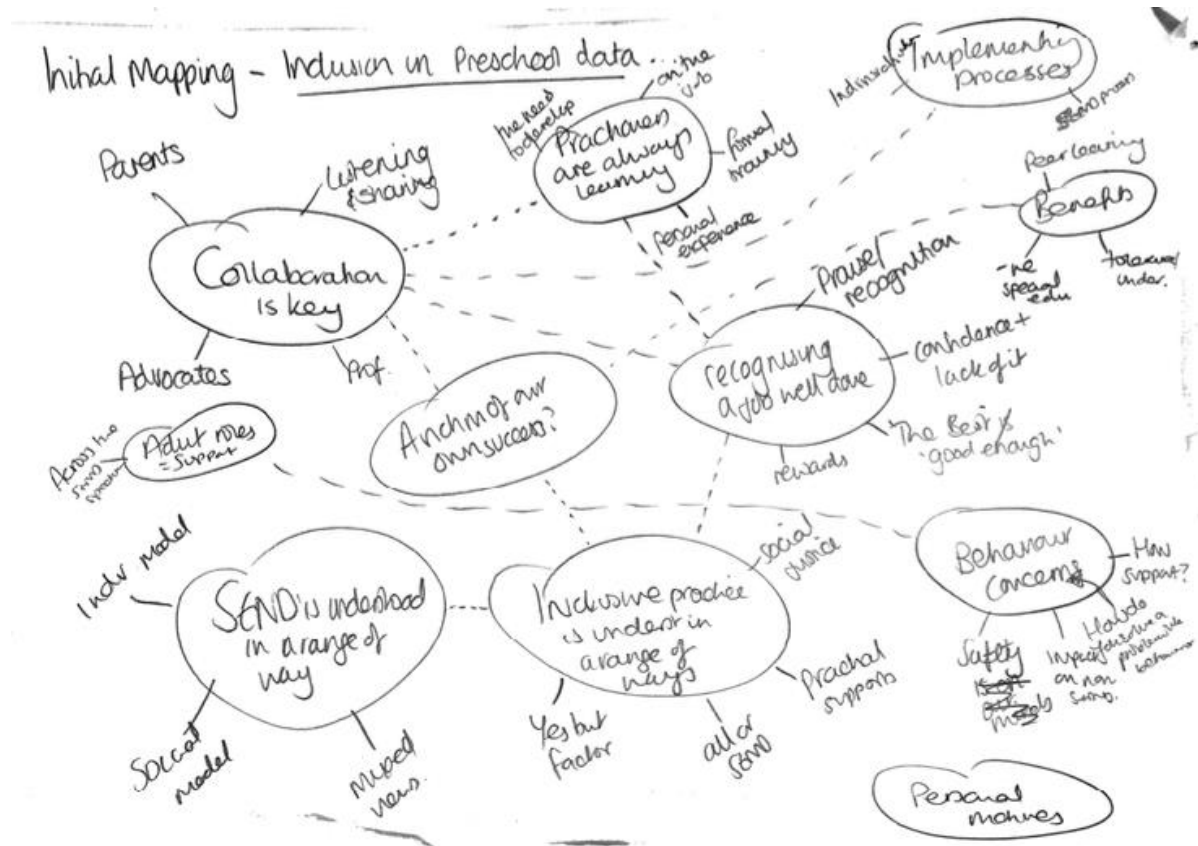 Initial Mapping - Inclusion in Preschool data...
Parents
Listening
& sharing
Collaboration
is key
Advocates
Prof.
the need
to develop
on the
job
Practioners
are always
learning
formal
training
personal
experience
Implementing
processes
SEND process
Peer learning
Benefits
-ve
special
edu
tolerance/
under.
Praise/
recognition
recognising
a job well done
confidence +
lack of it
'The Best is
'good enough'
rewards
Anchim of our
own success?
Adult roles
= support
Across the
SEND
spectrum
Indiv model
SEND is understood
in a range of
way
Social
model
mixed
views.
Inclusive practice
is underst in
a range of
ways
social
justice
Practical
supports
all or
SEND
Yes but
factor
Behaviour
concerns
How
support?
How do
/describe a
problematic
behaviour
impact
on non
SEND.
Safety
Personal
motives